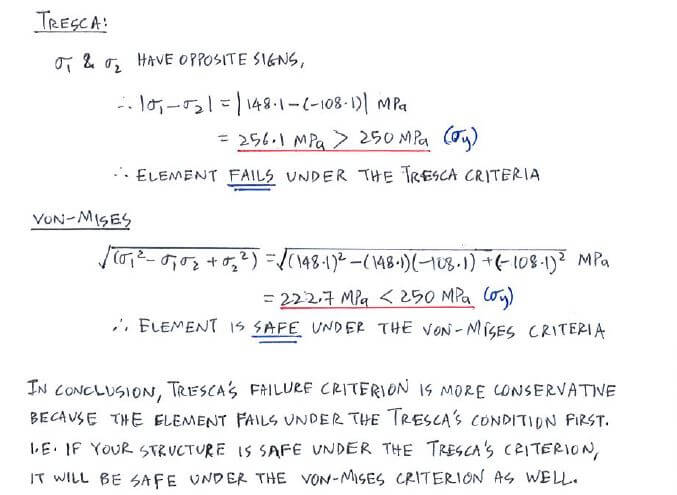 TRESCA:
σ1 & σ2 HAVE OPPOSITE SIGNS,
∴ |σ1-σ2| = |148.1-(-108.1)| MPa
= 256.1 MPa > 250 MPa (σy)
∴ ELEMENT FAILS UNDER THE TRESCA CRITERIA
VON-MISES
√(σ1²-σ1σ2+σ2²) = √(148.1)²-(148.1)(-108.1)+(-108.1)² MPa
= 222.7 MPa < 250 MPa (σy)
∴ ELEMENT IS SAFE UNDER THE VON-MISES CRITERIA
IN CONCLUSION, TRESCA'S FAILURE CRITERION IS MORE CONSERVATIVE
BECAUSE THE ELEMENT FAILS UNDER THE TRESCA'S CONDITION FIRST.
I.E. IF YOUR STRUCTURE IS SAFE UNDER THE TRESCA'S CRITERION,
IT WILL BE SAFE UNDER THE VON-MISES CRITERION AS WELL.